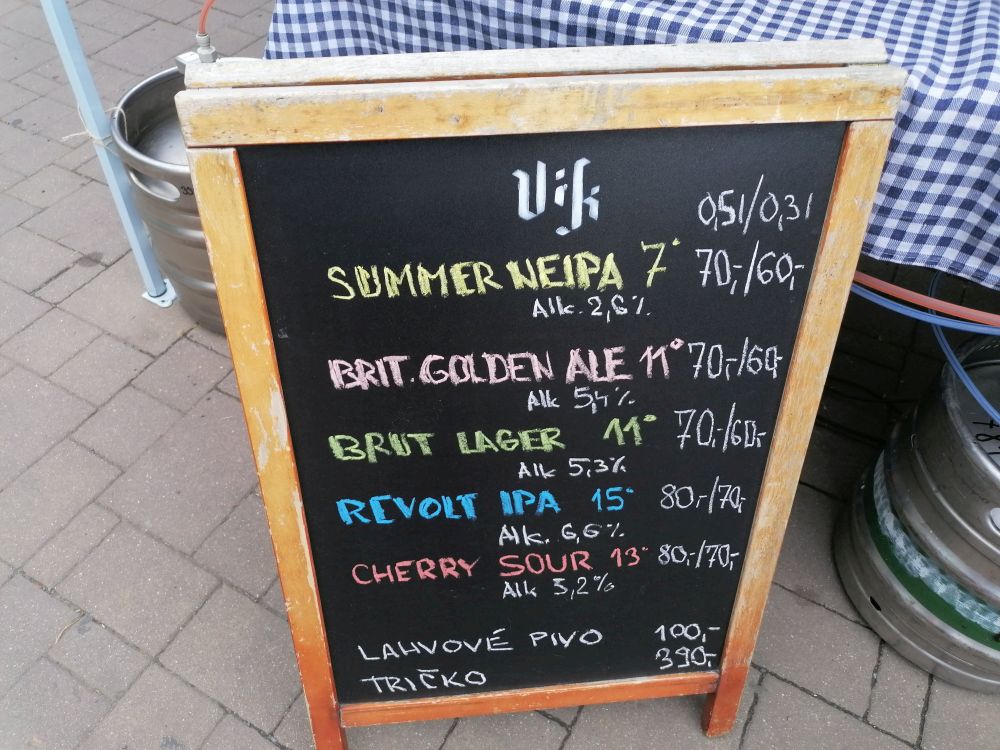 Vik
0,5l/0,3l
SUMMER NEIPA 7° 70,-/60,-
Alk. 2,6%
BRIT. GOLDEN ALE 11° 70,-/60,-
Alk 5,4%
BRUT LAGER 11° 70,-/60,-
Alk 5,3%
REVOLT IPA 15° 80,-/70,-
Alk. 6,6%
CHERRY SOUR 13° 80,-/70,-
Alk 5,2%
LAHVOVÉ PIVO 100,-
TRIČKO 390,-